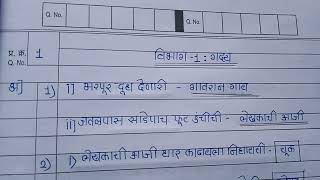 Q. No. Q. No.
प्र. क्र. Q. No. 1 विभाग -1 : गद्य
अ) 1) i) भरपूर दूध देणारी - गावरान गाय
ii) जवळपास साडेपाच फूट उंचीची - लेखकाची आजी
2) i) लेखकाची आजी धार काढायला निघायची - चूक